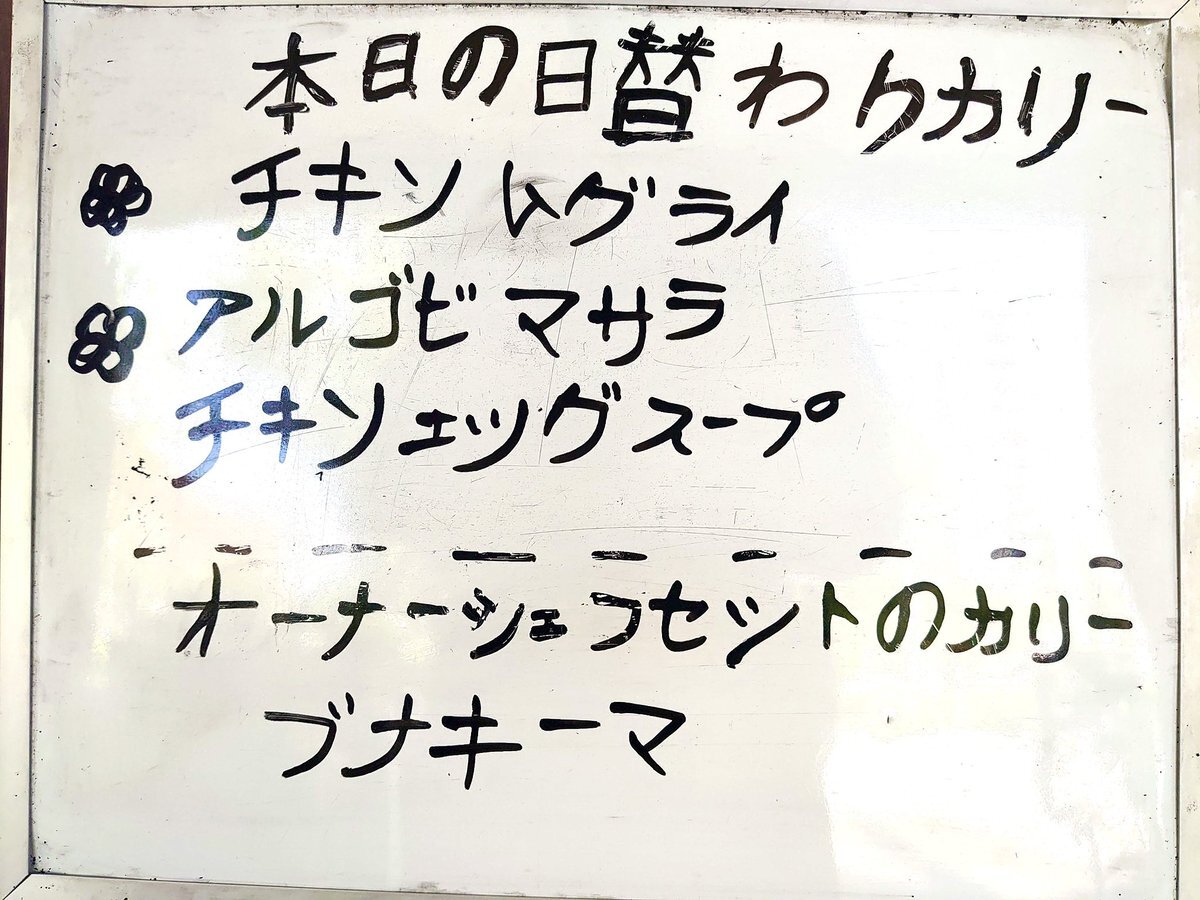 本日の日替わりカリー
チキン ムグライ
アルゴビマサラ
チキンエッグスープ
オーナーシェフセットのカリー
ブナキーマ